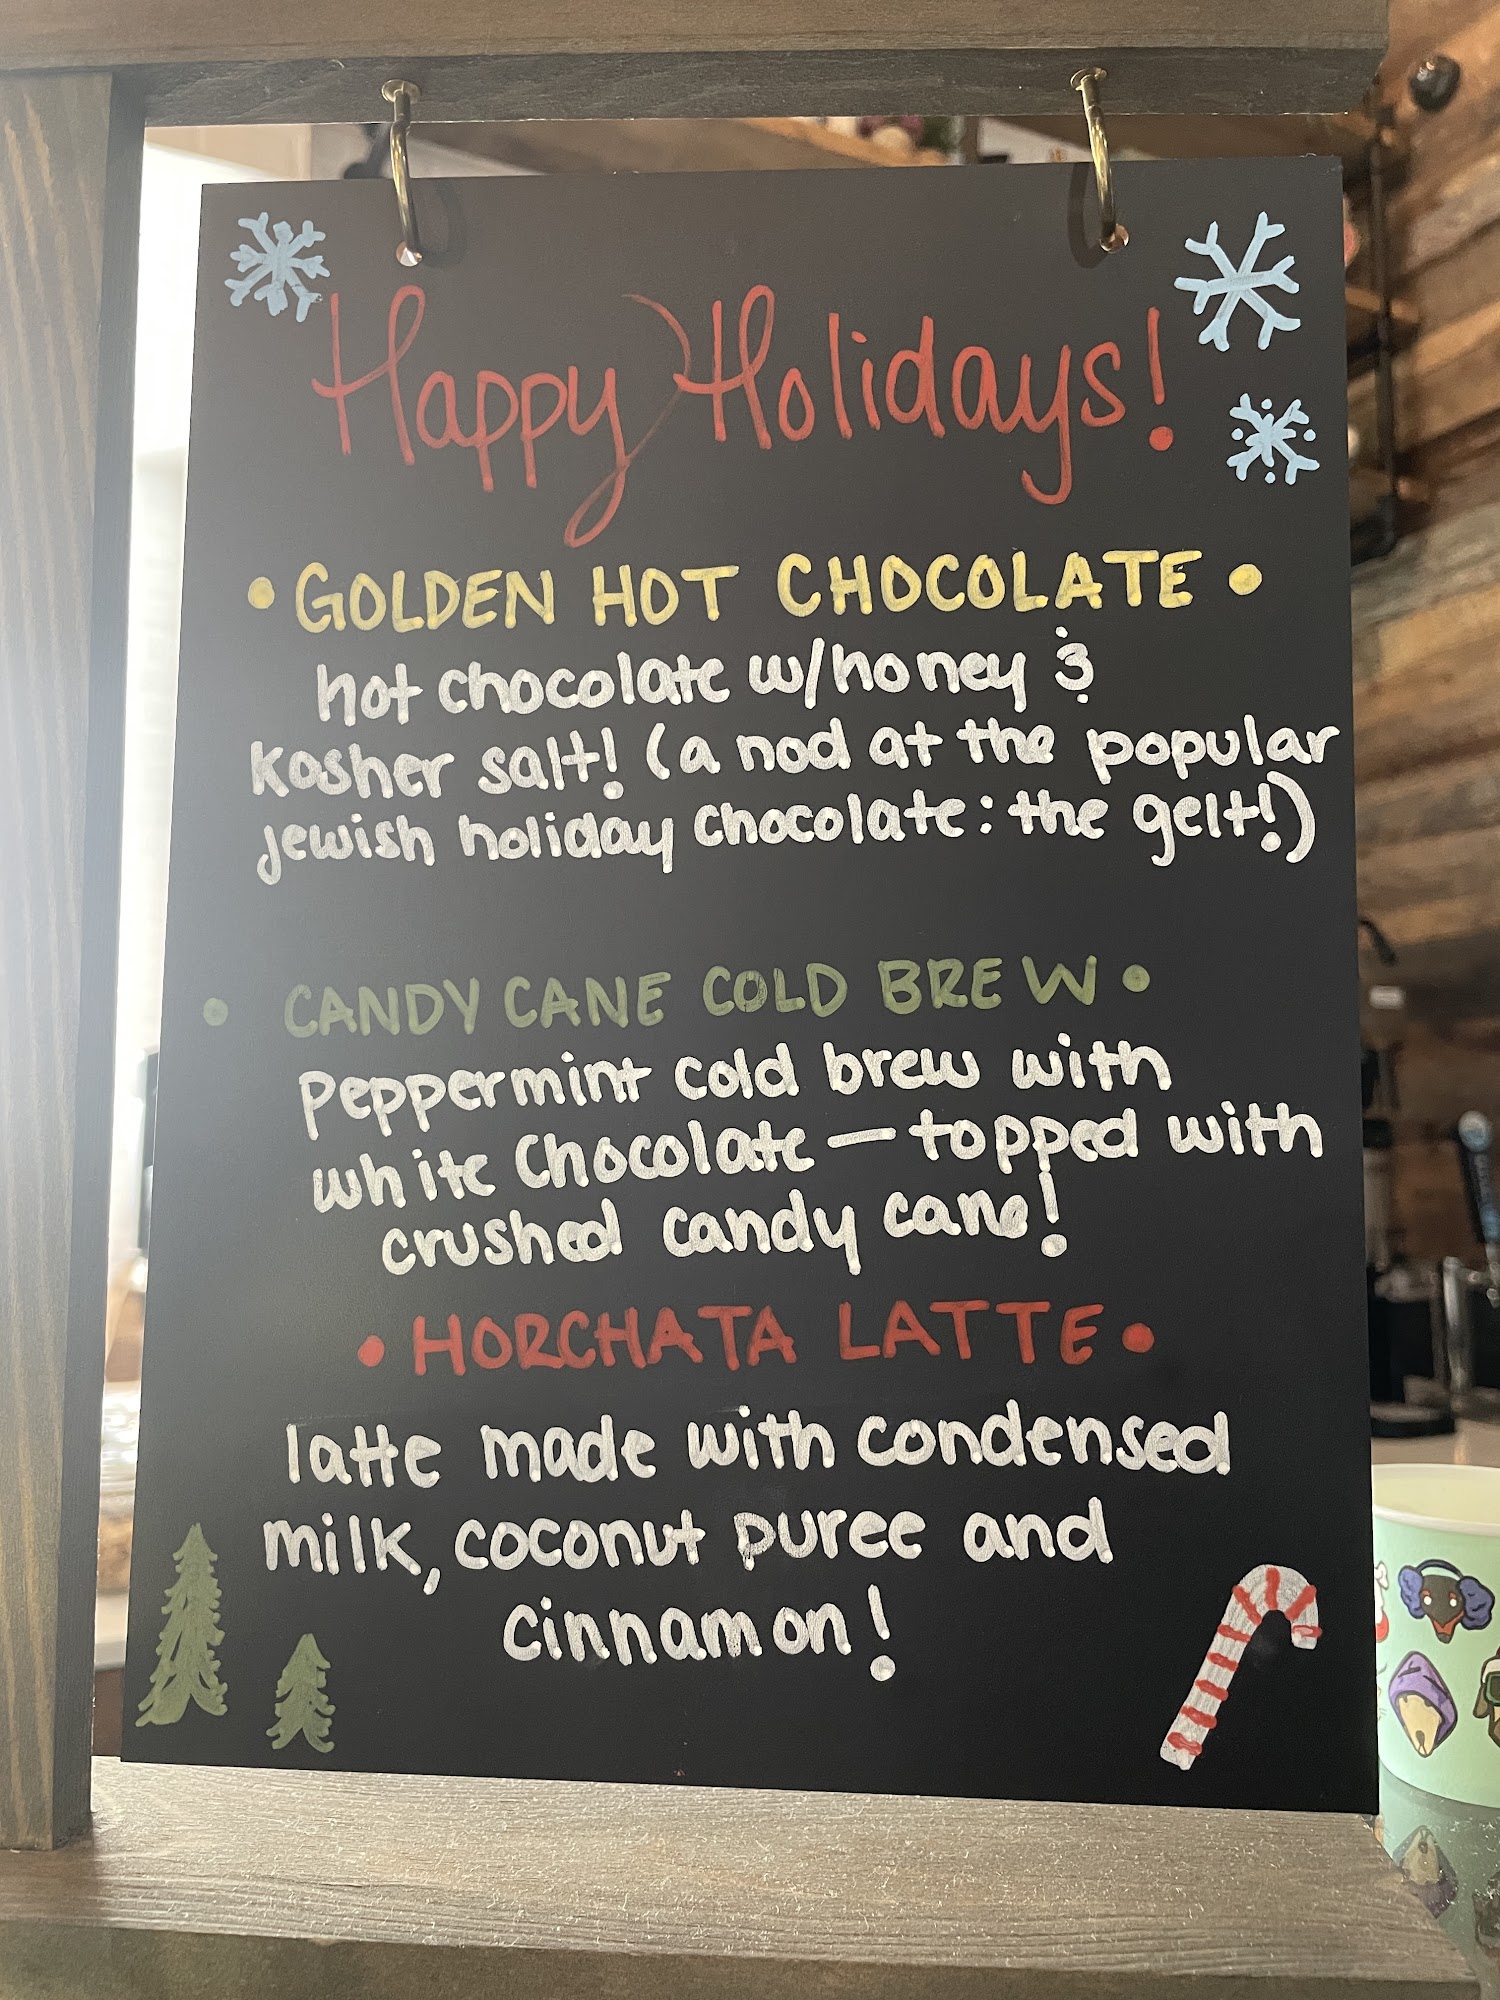 Happy Holidays!
• GOLDEN HOT CHOCOLATE •
hot chocolate w/honey &
kosher salt! (a nod at the popular
jewish holiday chocolate: the gelt!)
• CANDY CANE COLD BREW •
peppermint cold brew with
white chocolate — topped with
crushed candy cane!
• HORCHATA LATTE •
latte made with condensed
milk, coconut puree and
cinnamon!